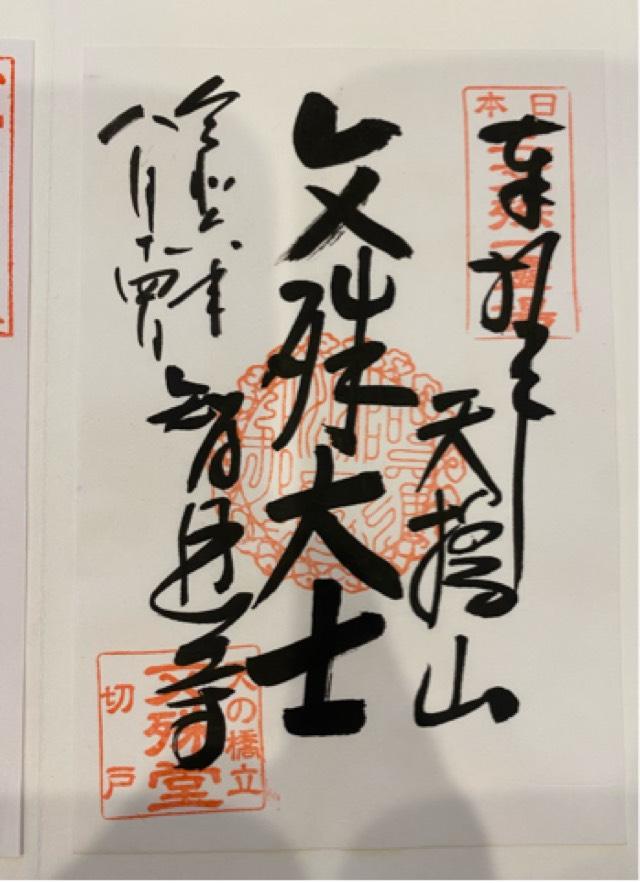 奉拝
天橋山
文殊大士
智恩寺
令和六年
八月十四日
日本
天の橋立
文殊堂
切戸